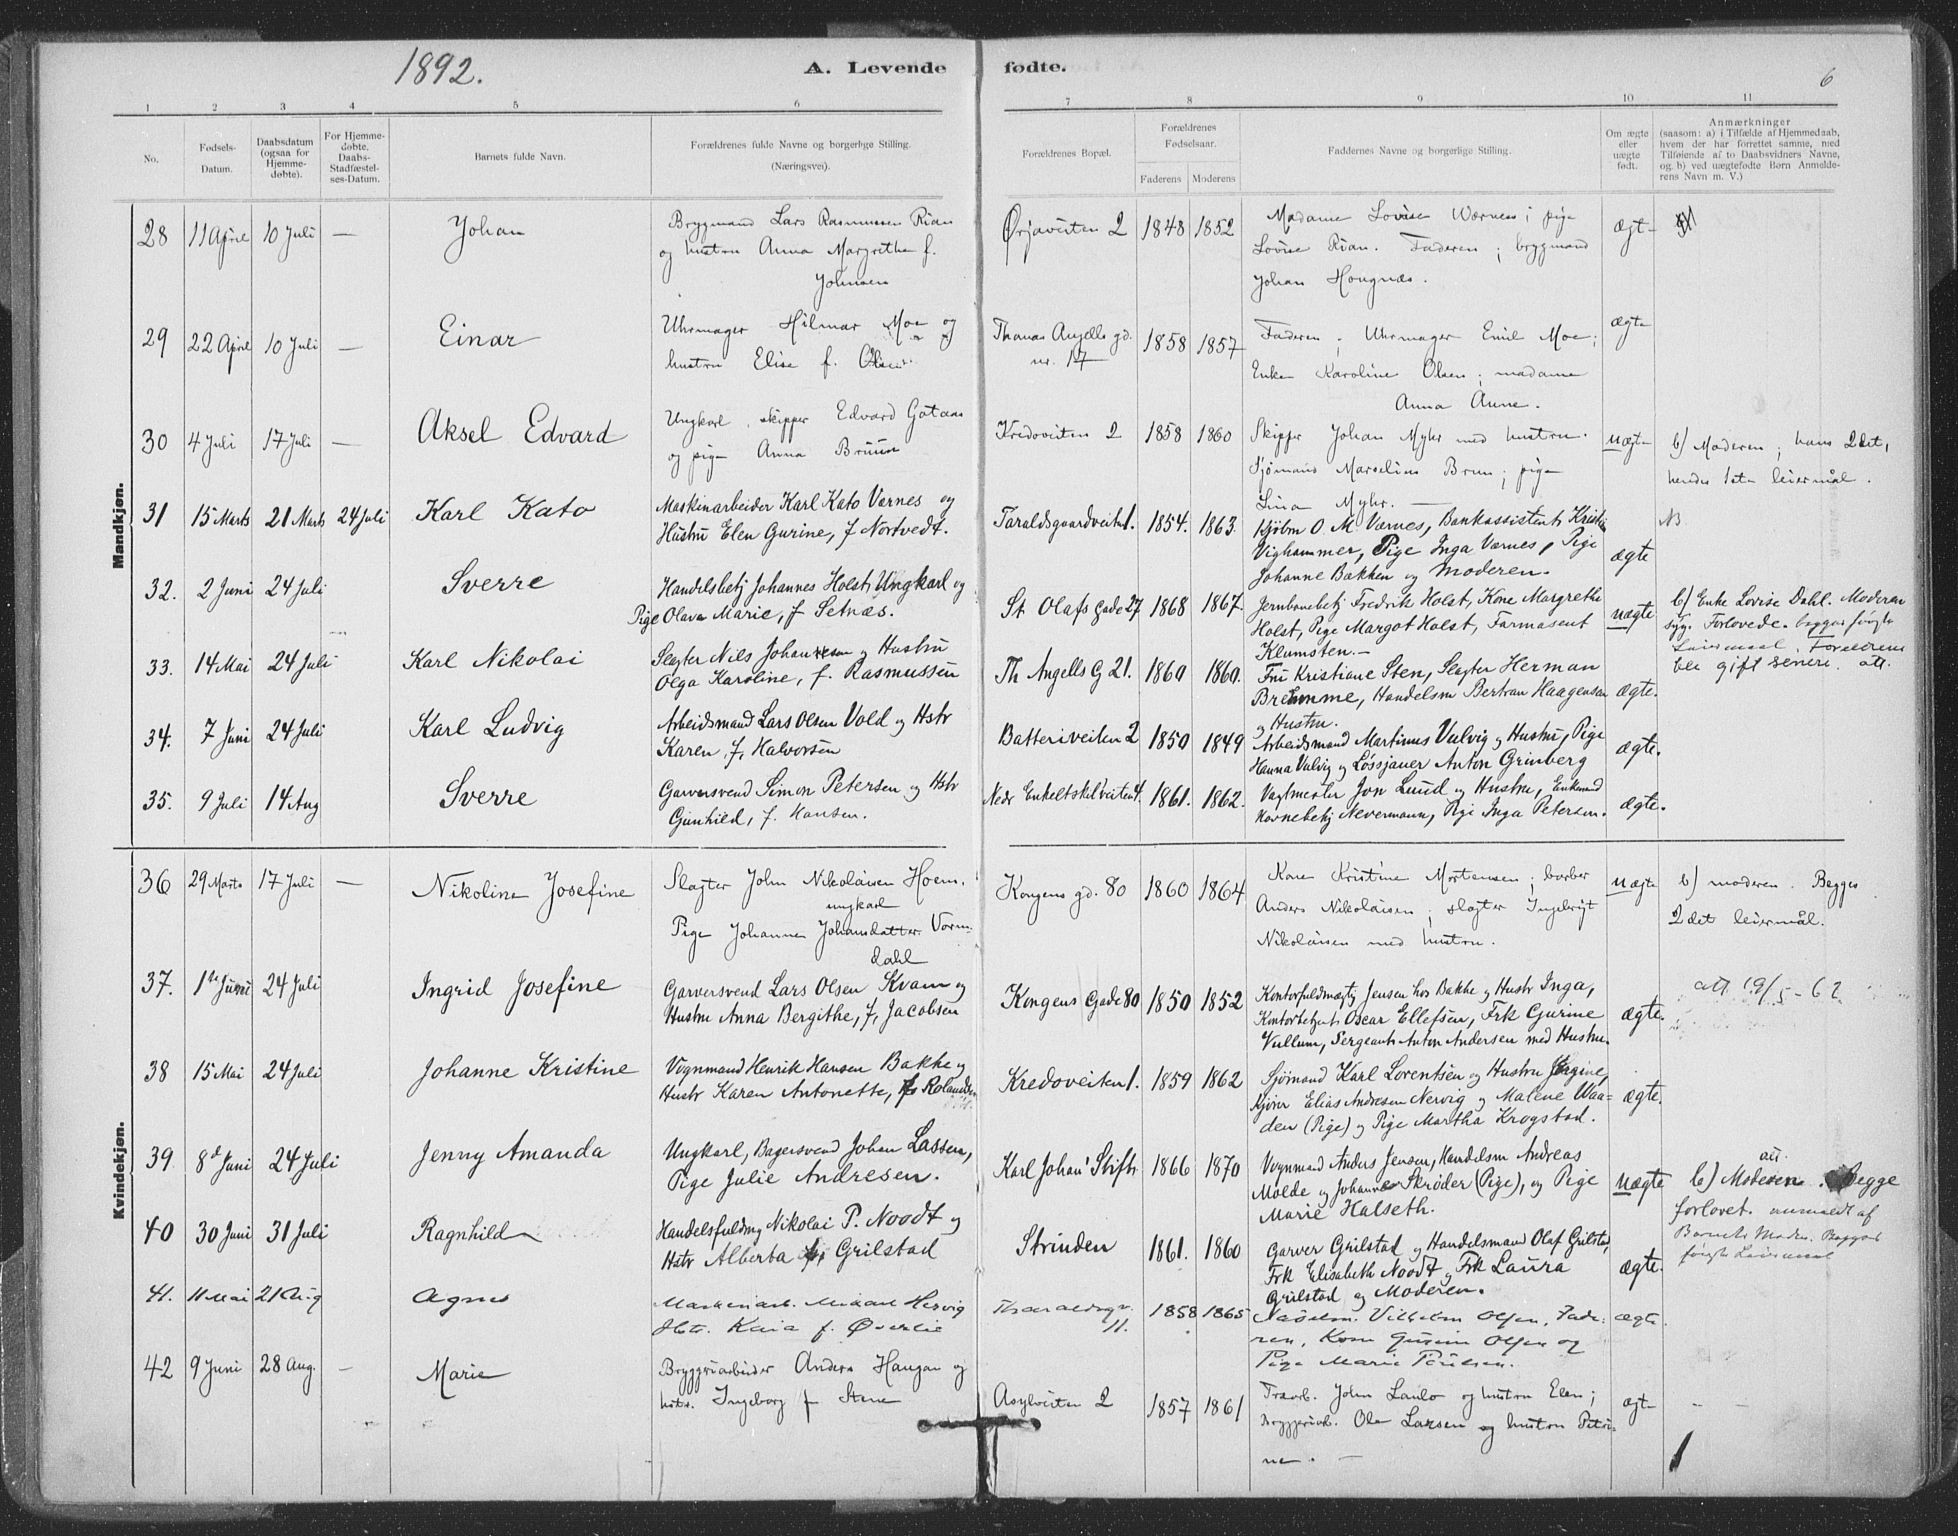 1892.
A. Levende fødte.
6
1 2 3 4 5 6 7 8 9 10 11
No.
Fødsels-Datum.
Daabsdatum (ogsaa for Hjemme-døbte).
For Hjemme-døbte. Daabs-Stadfæstel-ses-Datum.
Barnets fulde Navn.
Forældrenes fulde Navne og borgerlige Stilling. (Næringsvei).
Forældrenes Bopæl.
Forældrenes Fødselsaar.
Faderens Moderens
Faddernes Navne og borgerlige Stilling.
Om ægte eller uægte født.
Anmærkninger
(saasom: a) i Tilfælde af Hjemmedaab,
hvem der har forrettet samme, med
Tilføiende af to Daabsvidners Navne,
og b) ved uægtefødte Børn Anmelde-
rens Navn m. V.)
Mandkjøn.
28 11 April 10 Juli — Johan
Brygmand Lars Rasmussen Rian
og hustru Anna Margrethe f.
Johnsen
Ørjaveiten 2 1848 1852
Madame Lovise Værness; pige
Lovise Rian. Faderen; brygmand
Johan Hongnæs.
ægt-
29 22 April 10 Juli — Einar
Uhrmager Hilmar Moe og
hustru Elise f. Olsen
Thomas Angells gd.
nr. 17
1858 1857
Faderen; Uhrmager Emil Moe;
Enke Karoline Olsen; madame
Anna Aune.
ægte
30 4 Juli 17 Juli — Aksel Edvard
Ungkarl, skipper Edvard Gotaas
og pige Anna Bruun
Kredoveiten 2 1858 1860
Skipper Johan Myhr med hustru.
Sjømand Marselius Brun; pige
Lina Myhr. —
uægte
b) Moderen; hans 2det,
hendes 1ste leiermål.
31 15 Marts 21 Marts 24 Juli Karl Kato
Maskinarbeider Karl Kato Værnes og
Hustru Elen Gurine, f Nortvedt.
Taraldsgaardveiten 1. 1854. 1863.
Kjøbm O M Værnes, Bankassistent Kristi
Vighammer, Pige Inga Værnes, Pige
Johanne Bakken og Moderen.
ægte
32. 2 Juni 24 Juli Sverre
Handelsbetj Johannes Holst, Ungkarl og
Pige Olava Marie, f Setnæs.
St Olafs gade 27 1868 1867.
Jernbanebetj Fredrik Holst, Kone Margrethe
Holst, Pige Margot Holst, Farmaseut
Klumsten. —
uægte
b) Enke Lovise Dahl. Moderen
syg. Forlovede. begges første
Leiermaal. Forældrene
ble gift senere. att.
33. 14 Mai 24 Juli Karl Nikolai
Slagter Nils Johansen og Hustru
Olga Karoline, f. Rasmussen
Th Angells G 21. 1860 1860.
Fru Kristiane Sten, Slagter Herman
Bremme, Handelsm Bertran Haagensen
og Hustru.
ægte.
34. 7 Juni 24 Juli Karl Ludvig
Arbeidsmand Lars Olsen Vold og Hstr
Karen, f, Halvorsen
Batteriveiten 2 1850 1849
Arbeidsmand Martinus Vulvig og Hustru, Pige
Hanna Vulvig og Løssjauer Anton Grinberg
ægte.
35. 9 Juli 14 Aug Sverre
Garversvend Simon Petersen og Hstr
Gunhild, f. Hansen.
Nedr Enkeltskilveiten 4. 1861. 1862.
Vagtmester Jon Lund og Hustru, Enkemand
Havnebetj Nevermann, Pige Inga Petersen.
ægte.
Kvindekjøn.
36 29 Marts 17 Juli — Nikoline Josefine
Slagter John Nikolaisen Hoem,
ungkarl
Pige Johanna Johansdatter Vorm-
dahl
Kongens gd. 80 1860 1864
Kone Kristine Mortensen; barber
Anders Nikolaisen; slagter Ingebrigt
Nikolaisen med hustru.
uægte
b) moderen. Begges
2det leiermål.
37. 1ste Juni 24 Juli Ingrid Josefine
Garversvend Lars Olsen Kvam og
Hustru Anna Bergithe, f, Jacobsen
Kongens Gade 80 1850 1852
Kontorfuldmægtig Jensen hos Bakke og Hustr Inga,
Kontorbetjent Oscar Ellefsen, Frk Gurine
Vullum, Sergeant Anton Andersen med Hustru.
ægte.
att 19/5-62
38 15 Mai 24 Juli Johanne Kristine
Vognmand Henrik Hansen Bakke og
Hustr Karen Antonette, f. Rolandsen
Kredoveiten 1. 1859 1862
Sjømand Karl Lorentsen og Hustru Jørgine,
Kjører Elias Andresen Nervig og Malene Waa-
den (Pige) og Pige Martha Krogstad.
ægte.
39 8d Juni 24 Juli Jenny Amanda
Ungkarl, Bagersvend Johan Lassen,
Pige Julie Andresen.
Karl Johan' Stift 1866 1870
Vognmand Anders Jensen, Handelsm Andreas
Molde og Johanne Skrøder (Pige), og Pige
Marie Halseth.
uægte
att.
b) Moderen. Begge
forlovet. anmeldt af
Barnets Moder. Begges
første Leiermaal
40 30 Juni 31 Juli Ragnhild
Handelsfuldmg Nikolai P. Noodt og
Hstr Alberta f, Grilstad
Strinden 1861. 1860
Garver Grilstad og Handelsmand Olaf Grilstad,
Frk Elisabeth Noodt og Frk Laura
Grilstad og Moderen.
ægte.
41. 11 Mai 21 Aug Agnes
Maskinarb. Mikael Hervig
Hstr. Kaia f. Øverlie
11. 1858 1865
Vilhelm Olsen, Fade-
ren, Kone Gurine Olsen og
Pige Marie Poulsen.
ægte
42 9 Juni 28 Aug. — Marie
Bryggeriarbeider Anders Haugan og
hstr. Ingeborg f Stene
Asylveiten 2 1857 1861
Travb. John Lanlo og hustru Elen;
Bryggeriarb. Ole Larsen og hustru Petri-
ne. —
ægt-